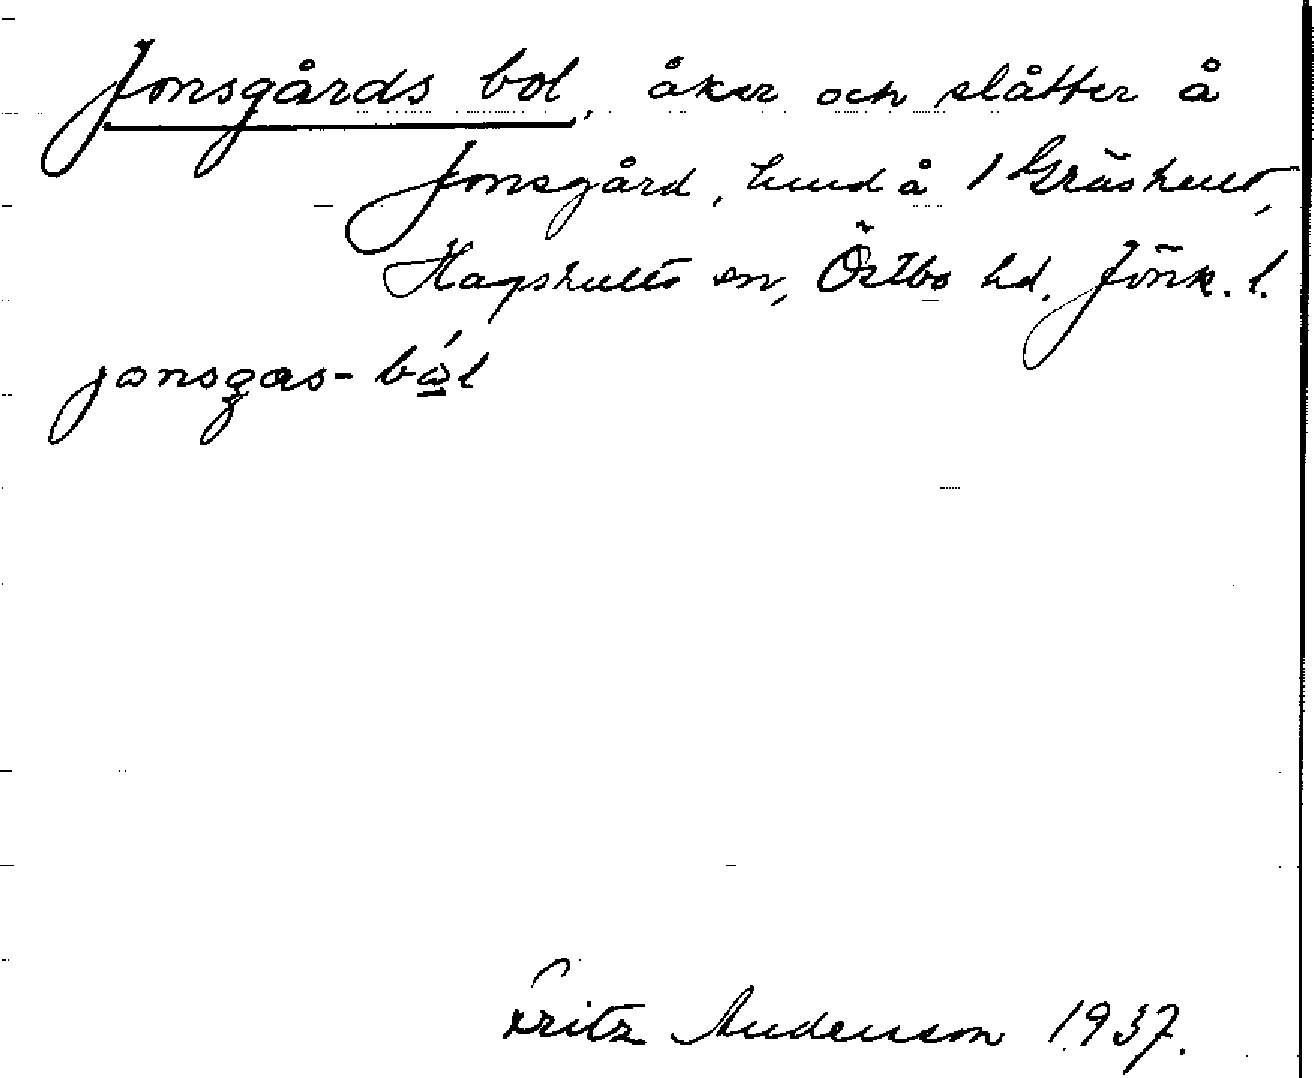 Jonsgårds bol, åker och slåtter å
Jonsgård, hmd å 1 Gräshult,
Hagshults sn, Östbo hd. Jönk. l.
jonsgas-ból
Fritz Anderson 1937.